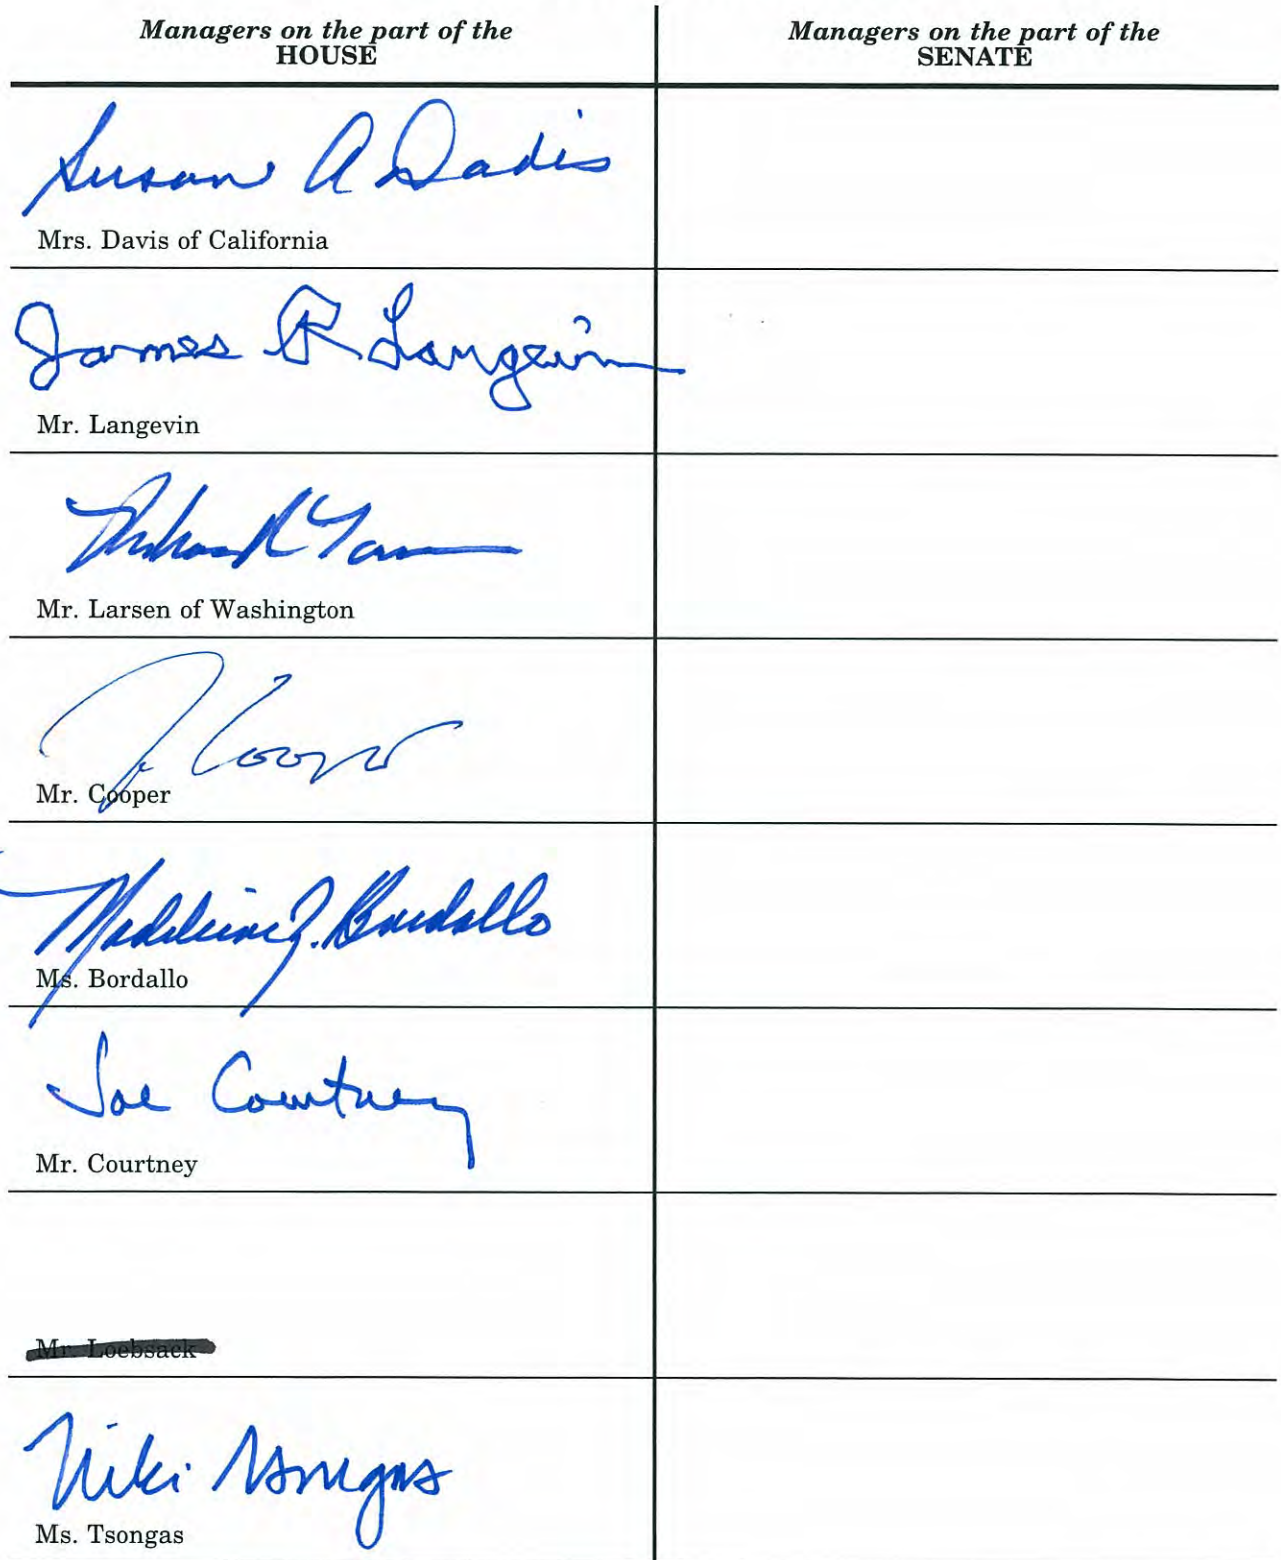 Managers on the part of the
HOUSE
Managers on the part of the
SENATE
Susan A Davis
Mrs. Davis of California
James R Langevin
Mr. Langevin
Mr. Larsen of Washington
J Cooper
Mr. Cooper
Madeleine Z. Bordallo
Ms. Bordallo
Joe Courtney
Mr. Courtney
Mr. Loebsack
Niki Tsongas
Ms. Tsongas